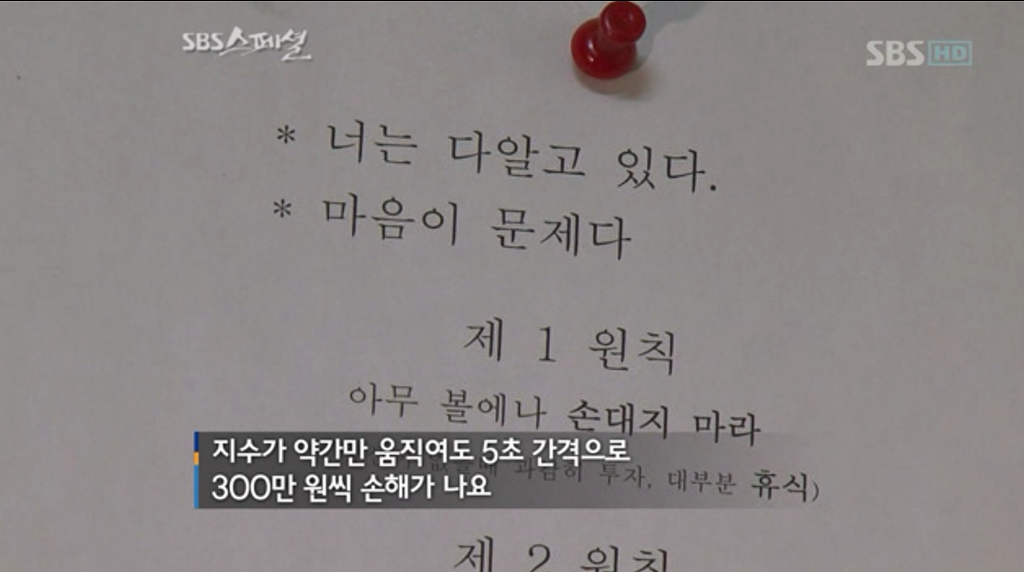 SBS 스페셜
SBS HD
* 너는 다알고 있다.
* 마음이 문제다
제 1 원칙
아무 볼에나 손대지 마라
과감히 투자, 대부분 휴식)
지수가 약간만 움직여도 5초 간격으로
300만 원씩 손해가 나요
제 2 원칙